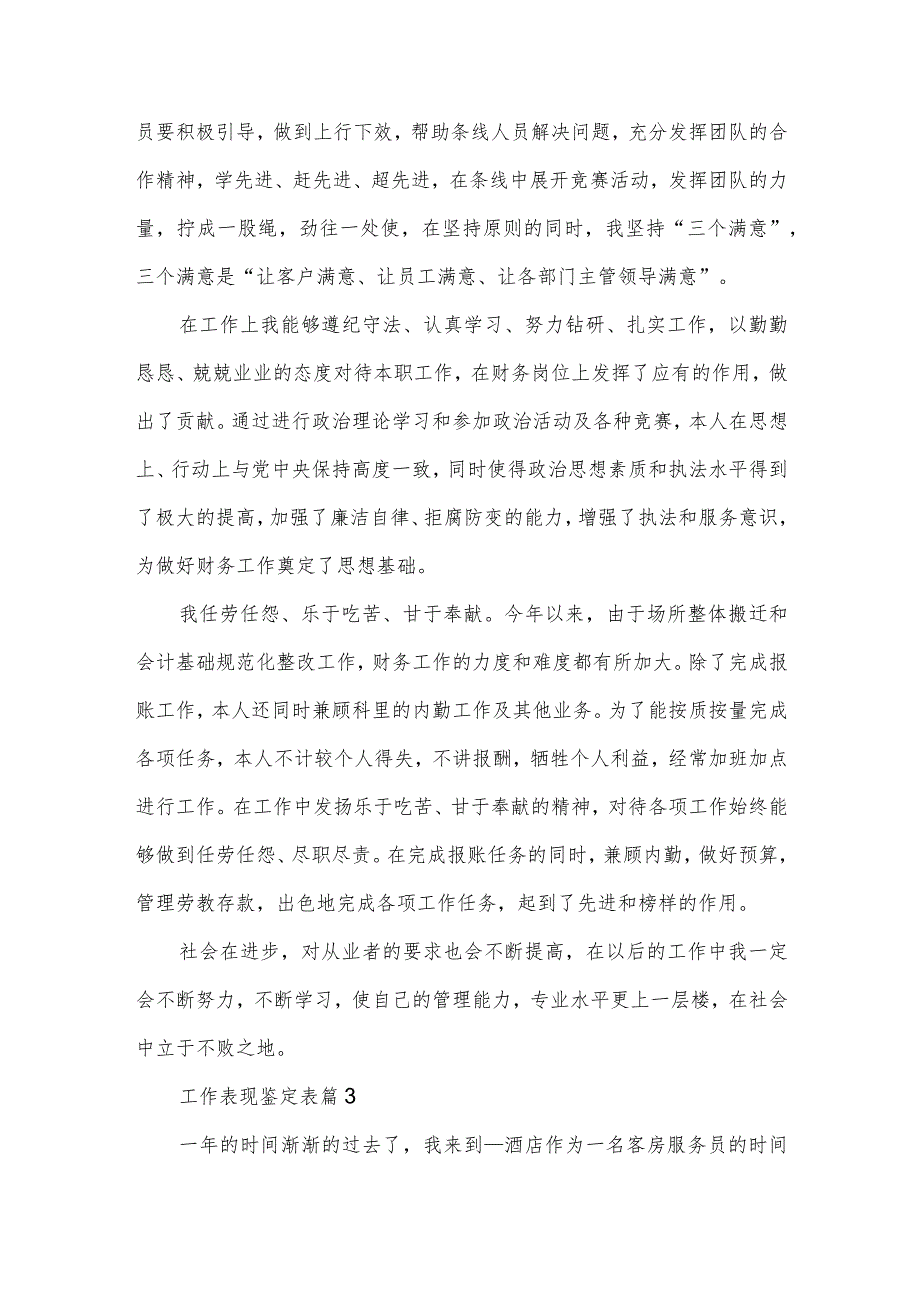 员要积极引导，做到上行下效，帮助条线人员解决问题，充分发挥团队的合
作精神，学先进、赶先进、超先进，在条线中展开竞赛活动，发挥团队的力
量，拧成一股绳，劲往一处使，在坚持原则的同时，我坚持“三个满意”，
三个满意是“让客户满意、让员工满意、让各部门主管领导满意”。
在工作上我能够遵纪守法、认真学习、努力钻研、扎实工作，以勤勤
恳恳、兢兢业业的态度对待本职工作，在财务岗位上发挥了应有的作用，做
出了贡献。通过进行政治理论学习和参加政治活动及各种竞赛，本人在思想
上、行动上与党中央保持高度一致，同时使得政治思想素质和执法水平得到
了极大的提高，加强了廉洁自律、拒腐防变的能力，增强了执法和服务意识，
为做好财务工作奠定了思想基础。
我任劳任怨、乐于吃苦、甘于奉献。今年以来，由于场所整体搬迁和
会计基础规范化整改工作，财务工作的力度和难度都有所加大。除了完成报
账工作，本人还同时兼顾科里的内勤工作及其他业务。为了能按质按量完成
各项任务，本人不计较个人得失，不讲报酬，牺牲个人利益，经常加班加点
进行工作。在工作中发扬乐于吃苦、甘于奉献的精神，对待各项工作始终能
够做到任劳任怨、尽职尽责。在完成报账任务的同时，兼顾内勤，做好预算，
管理劳教存款，出色地完成各项工作任务，起到了先进和榜样的作用。
社会在进步，对从业者的要求也会不断提高，在以后的工作中我一定
会不断努力，不断学习，使自己的管理能力，专业水平更上一层楼，在社会
中立于不败之地。
工作表现鉴定表篇 3
一年的时间渐渐的过去了，我来到—酒店作为一名客房服务员的时间